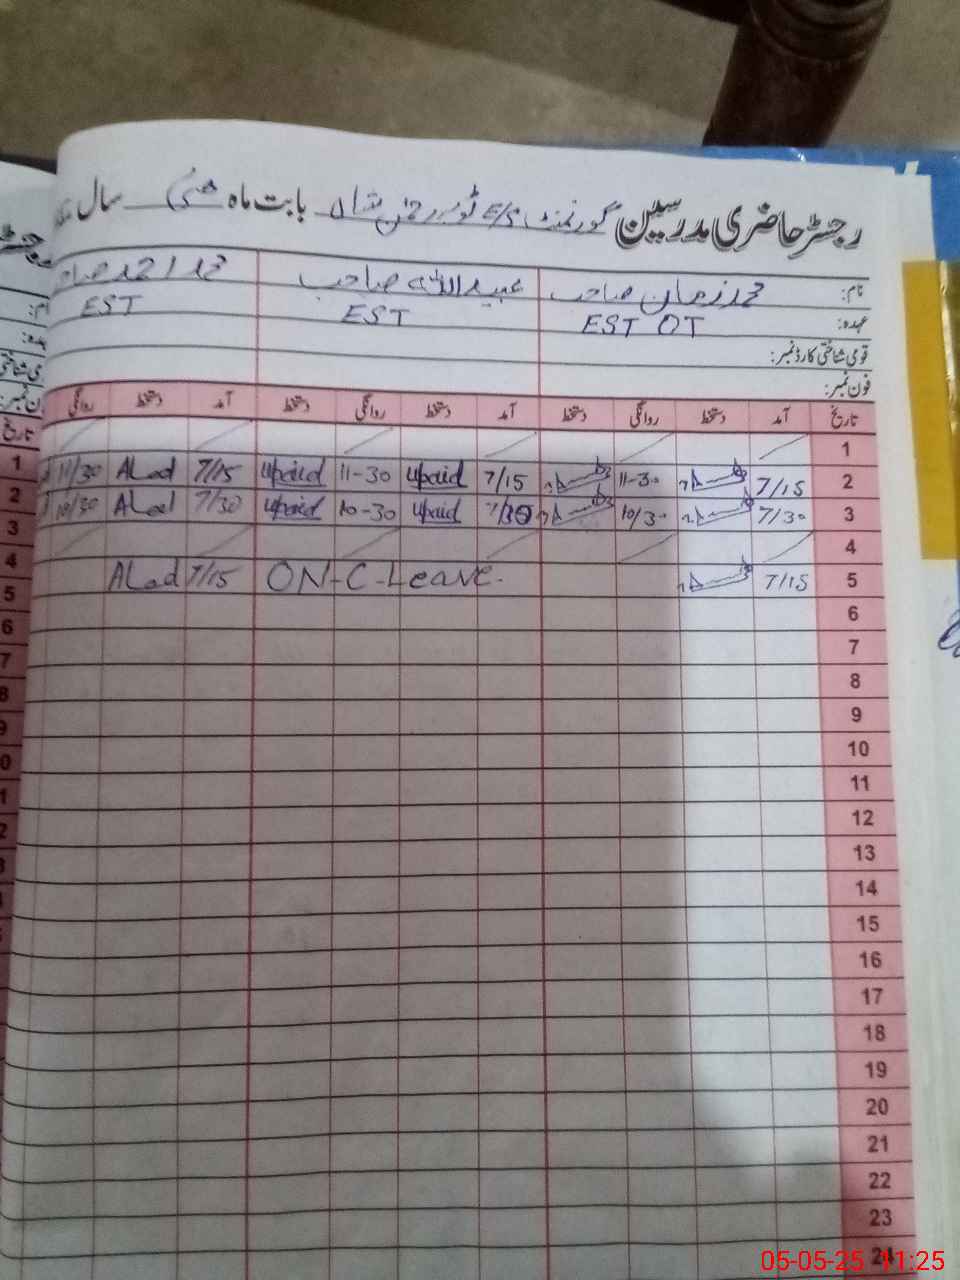 رجسٹر حاضری مدرسین گورنمنٹ E/S بابت ماہ مئی سال
نام: محمد زمان صاحب عبید اللہ صاحب محمد احمد صاحب
عہدہ: EST OT EST EST
قومی شناختی کارڈ نمبر:
فون نمبر:
تاریخ آمد دستخط روانگی دستخط آمد دستخط روانگی دستخط آمد دستخط روانگی
1
2 7/15 11-30 7/15 upaid 11-30 upaid 7/15 ALad 11/30
3 7/30 10/30 7/30 upaid 10-30 upaid 7/30 ALad 10/30
4
5 7/15 ON-C-Leave. 7/15 ALad
6
7
8
9
10
11
12
13
14
15
16
17
18
19
20
21
22
23
24
05-05-25 11:25